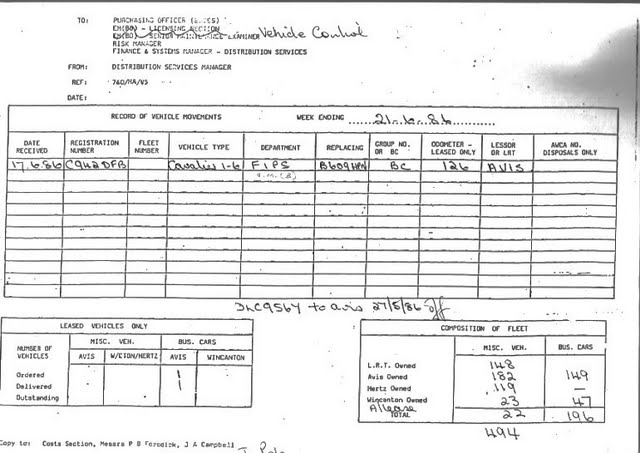 TO: PURCHASING OFFICER (BUSES)
EM(BO) - LICENSING SECTION
EM(BO) - SENIOR MAINTENANCE EXAMINER Vehicle Control
RISK MANAGER
FINANCE & SYSTEMS MANAGER - DISTRIBUTION SERVICES
FROM: DISTRIBUTION SERVICES MANAGER
REF: 740/MA/VS
DATE:
RECORD OF VEHICLE MOVEMENTS WEEK ENDING 21.6.86
DATE RECEIVED REGISTRATION NUMBER FLEET NUMBER VEHICLE TYPE DEPARTMENT REPLACING GROUP NO. OR BC ODOMETER - LEASED ONLY LESSOR OR LRT AWCA NO. DISPOSALS ONLY
17.6.86 C942DFB Cavalier 1-6 FIPS BC 126 AVIS
to avis 27/5/86
LEASED VEHICLES ONLY
NUMBER OF VEHICLES MISC. VEH. BUS. CARS
AVIS W/CTON/HERTZ AVIS WINCANTON
Ordered 1
Delivered 1
Outstanding
COMPOSITION OF FLEET
MISC. VEH. BUS. CARS
L.R.T. Owned 148
Avis Owned 182 149
Hertz Owned 119 —
Wincanton Owned 23 47
Allease 22
TOTAL 196
494
Copy to: Costs Section, Messrs P B J A Campbell